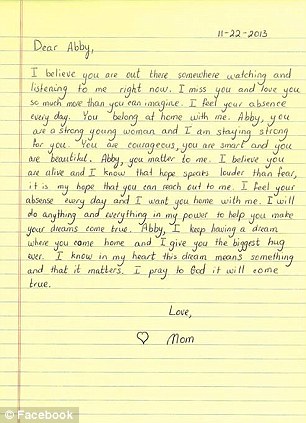 11-22-2013
Dear Abby,
I believe you are out there somewhere watching and
listening to me right now. I miss you and love you
so much more than you can imagine. I feel your absence
every day. You belong at home with me. Abby, you
are a strong young woman and I am staying strong
for you. You are courageous, you are smart and you
are beautiful. Abby, you matter to me. I believe you
are alive and I know that hope speaks louder than fear,
it is my hope that you can reach out to me. I feel your
absense every day and I want you home with me. I will
do anything and everything in my power to help you make
your dreams come true. Abby, I keep having a dream
where you come home and I give you the biggest hug
ever. I know in my heart this dream means something
and that it matters. I pray to God it will come
true.
Love,
♡ Mom
© Facebook